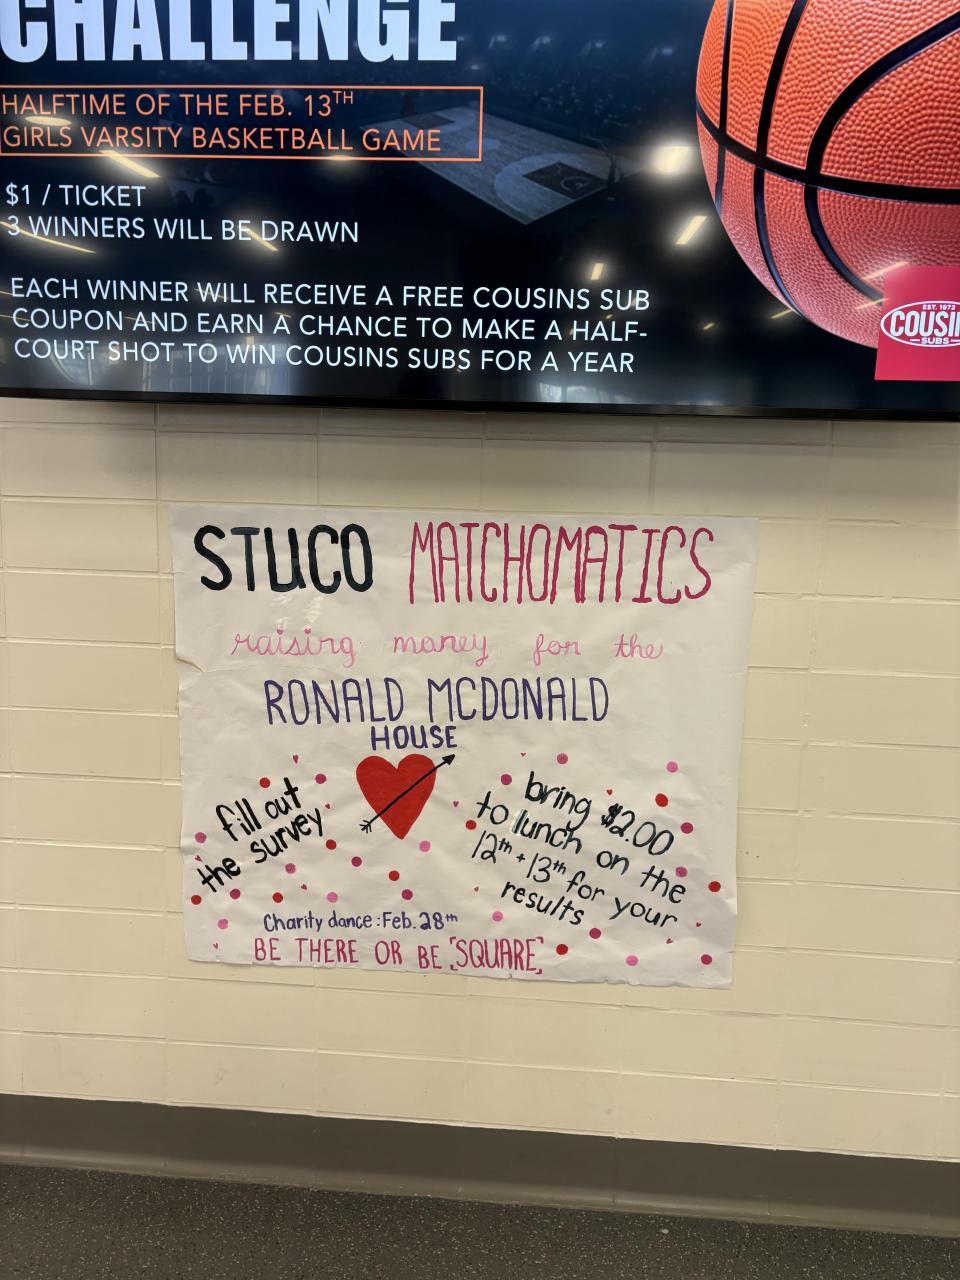 CHALLENGE
HALFTIME OF THE FEB. 13TH
GIRLS VARSITY BASKETBALL GAME
$1 / TICKET
3 WINNERS WILL BE DRAWN
EACH WINNER WILL RECEIVE A FREE COUSINS SUB
COUPON AND EARN A CHANCE TO MAKE A HALF-
COURT SHOT TO WIN COUSINS SUBS FOR A YEAR
EST. 1972
COUSI
SUBS
STUCO MATCHOMATICS
raising money for the
RONALD MCDONALD
HOUSE
fill out
the survey
bring $2.00
to lunch on the
12th + 13th for your
results
Charity dance: Feb. 28th
BE THERE OR BE "SQUARE"